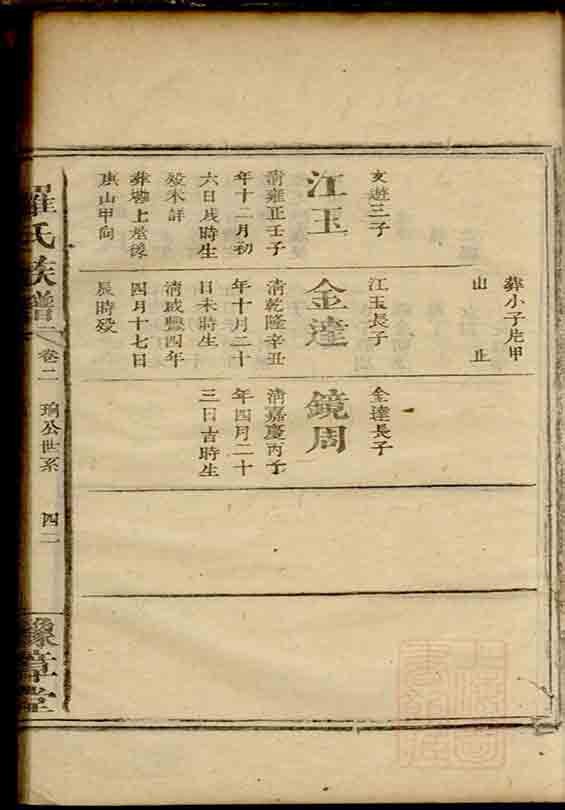 葬小子坵甲
山止
友遊三子
江玉
清雍正壬子
年十二月初
六日戌時生
歿未詳
葬
上屋後
庚山甲向
江玉長子
金達
清乾隆辛丑
年十月二十
日未時生
清咸豐四年
四月十七日
辰時歿
金達長子
鏡周
清嘉慶丙子
年四月二十
三日吉時生
羅氏族譜
卷二
瑜公世系
四二
豫章堂